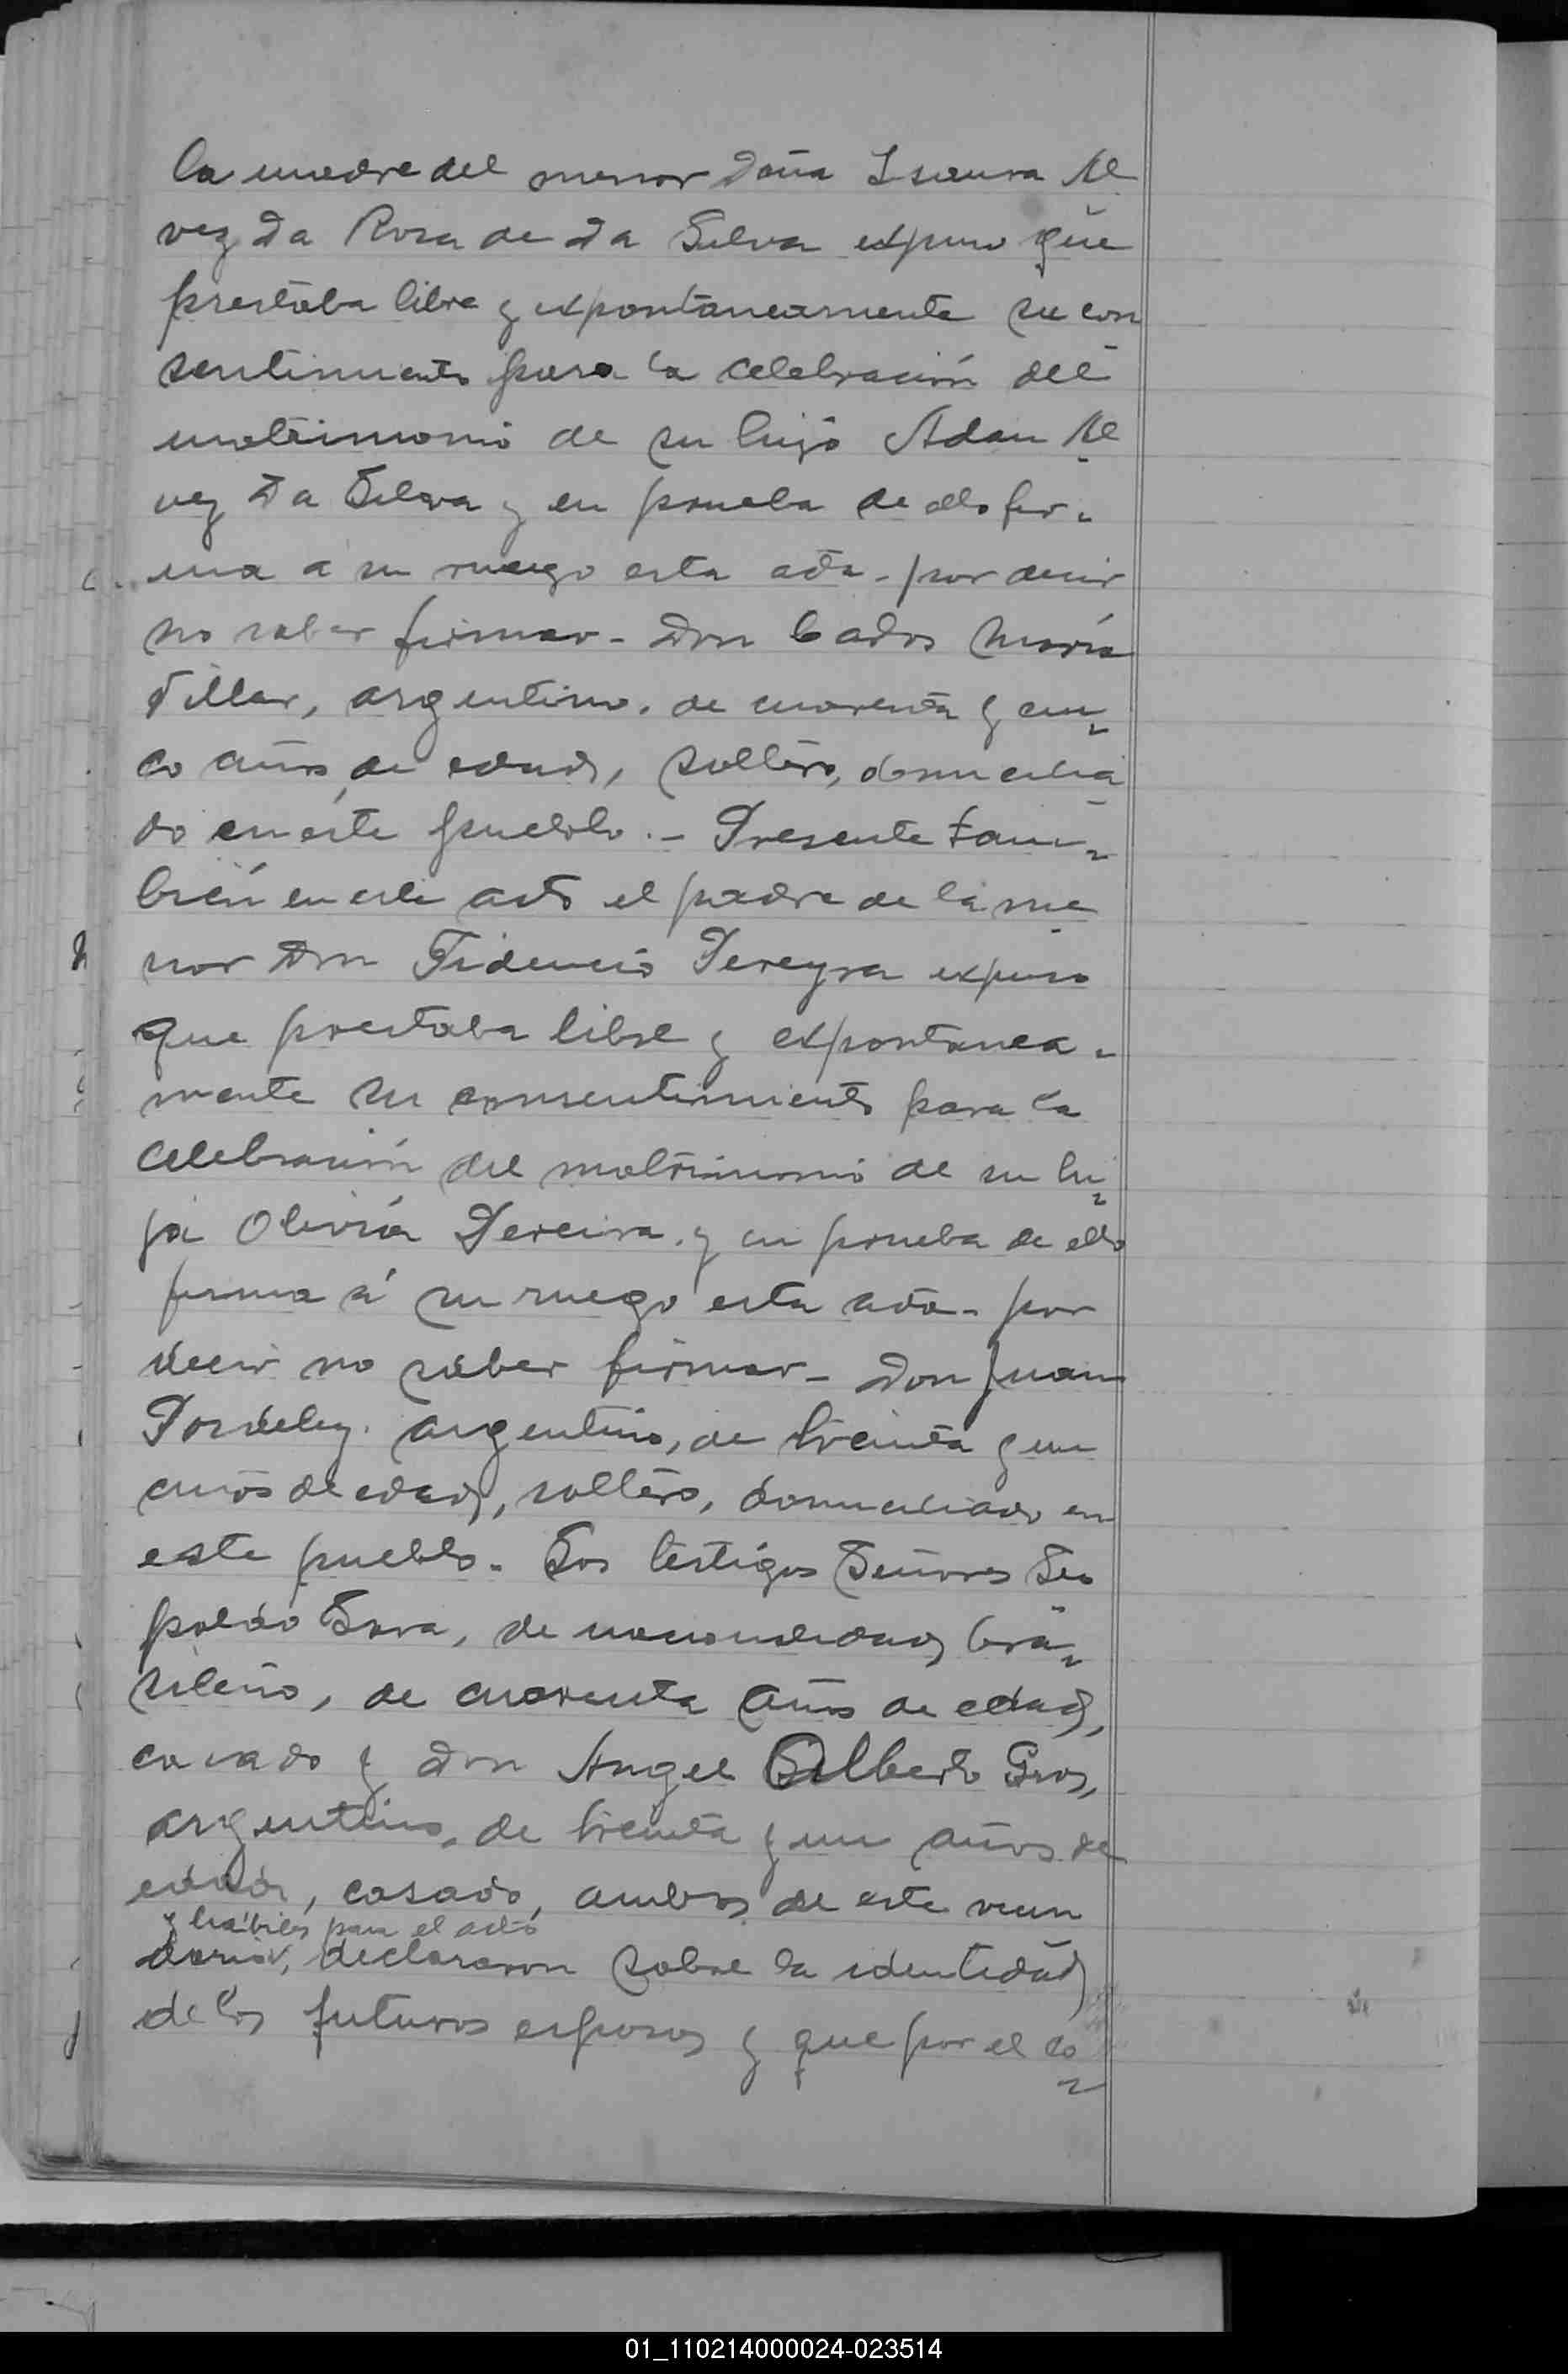 la madre del menor Doña Isaura Al
vez Da Rosa de Da Silva expuso que
prestaba libre y expontaneamente su con
sentimiento para la celebración del
matrimonio de su hijo Adan Al
vez Da Silva y en prueba de ello fir-
ma a su ruego esta acta - por decir
no saber firmar - Don Carlos María
Villar, argentino, de cuarenta y cin-
co años de edad, soltero, domicilia
do en este pueblo. - Presente tam-
bién en este acto el padre de la me
nor Don Fidencio Pereyra expuso
que prestaba libre y expontanea-
mente su consentimiento para la
celebración del matrimonio de su hi-
ja Olivia Pereira. y en prueba de ello
firma á su ruego esta acta - por
decir no saber firmar - Don Juan
argentino, de treinta y un
años de edad, soltero, domiciliado en
este pueblo. Los testigos Señores Leo
poldo de nacionalidad bra-
sileño, de cuarenta años de edad,
casado y don Angel Alberto Gros,
argentino, de treinta y un años de
edad, casado, ambos de este vecin
y hábiles para el acto
dario, declararon sobre la identidad
de los futuros esposos y que por el co-
01_110214000024-023514